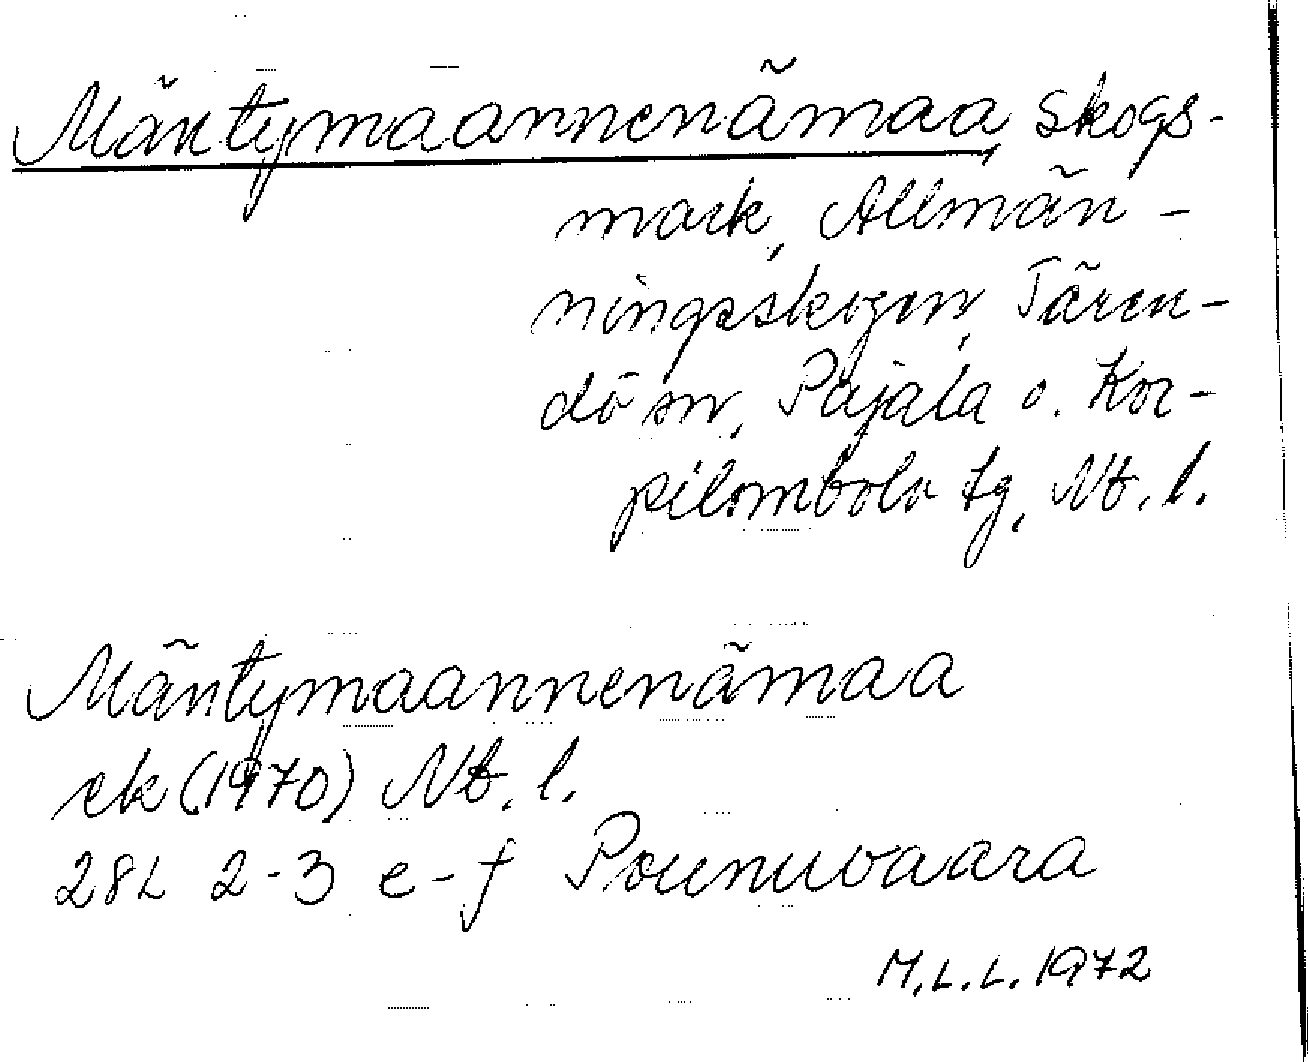 Mäntymaannenämaa, skogs-
mark, Allmän-
ningsskogen, Tären-
dö sn, Pajala o. Kor-
pilombolo tg, Nb. l.
Mäntymaannenämaa
ek (1970) Nb. l.
28L 2-3 e-f Pounuvaara
M.L.L. 1972